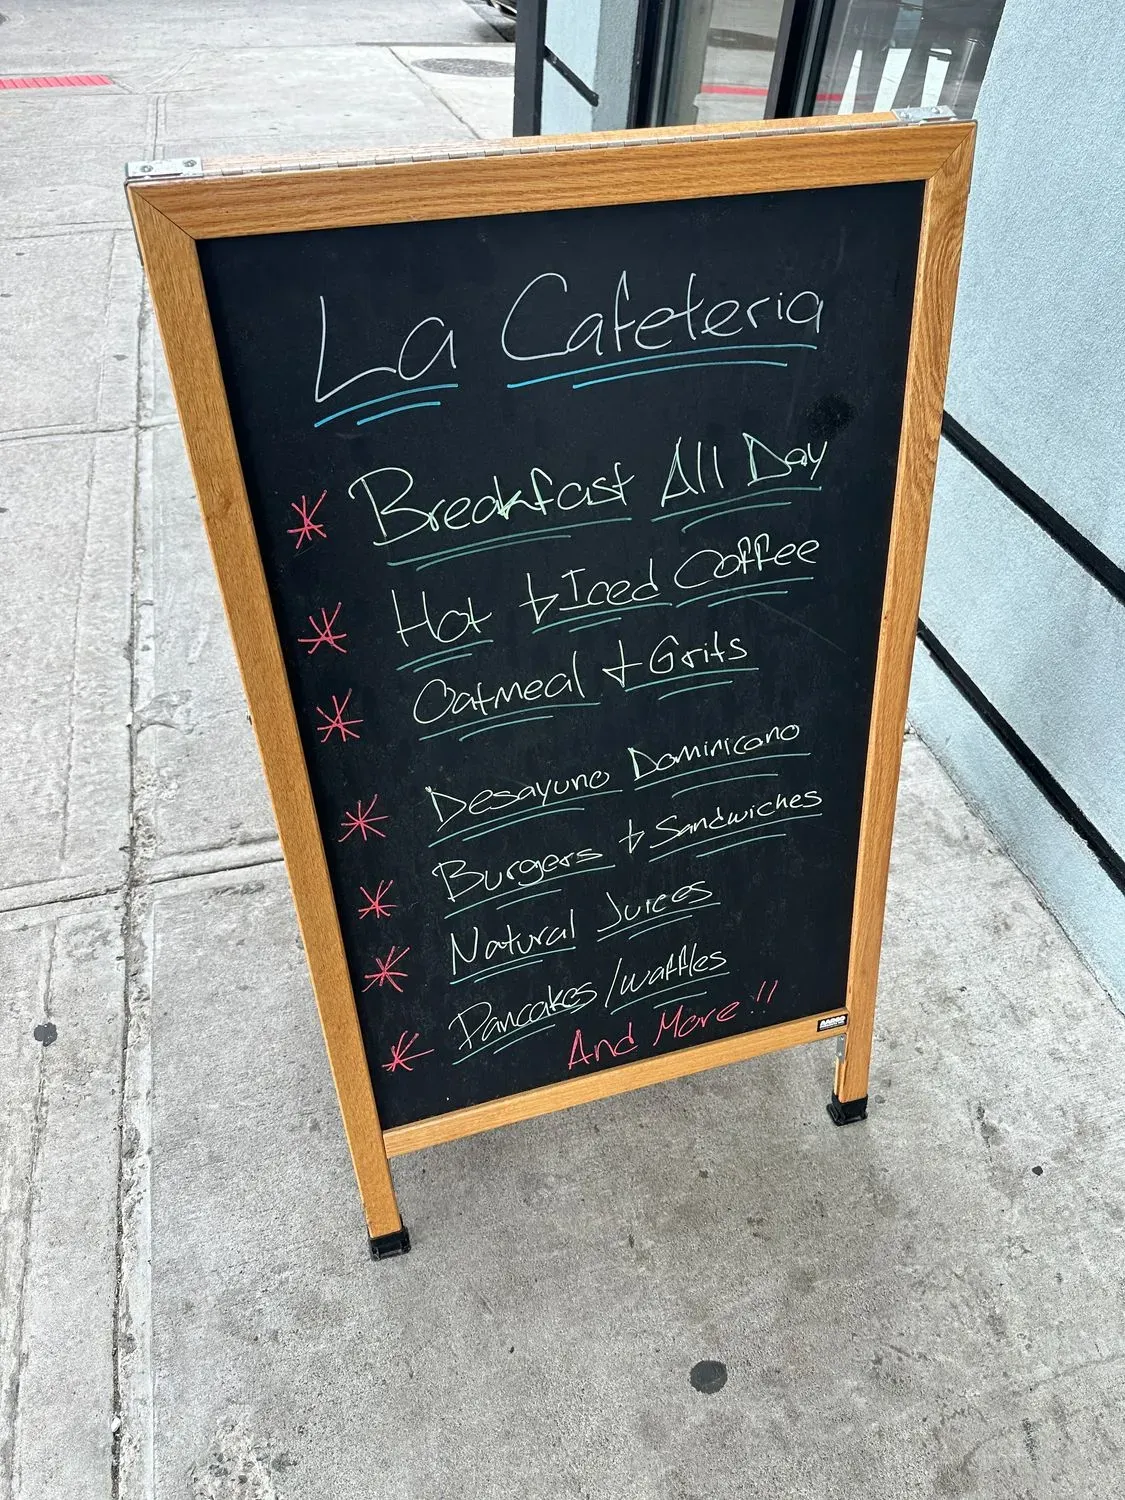 La Cafeteria
* Breakfast All Day
* Hot + Iced Coffee
* Oatmeal + Grits
* Desayuno Dominicano
* Burgers + Sandwiches
* Natural Juices
* Pancakes/waffles
And More!!